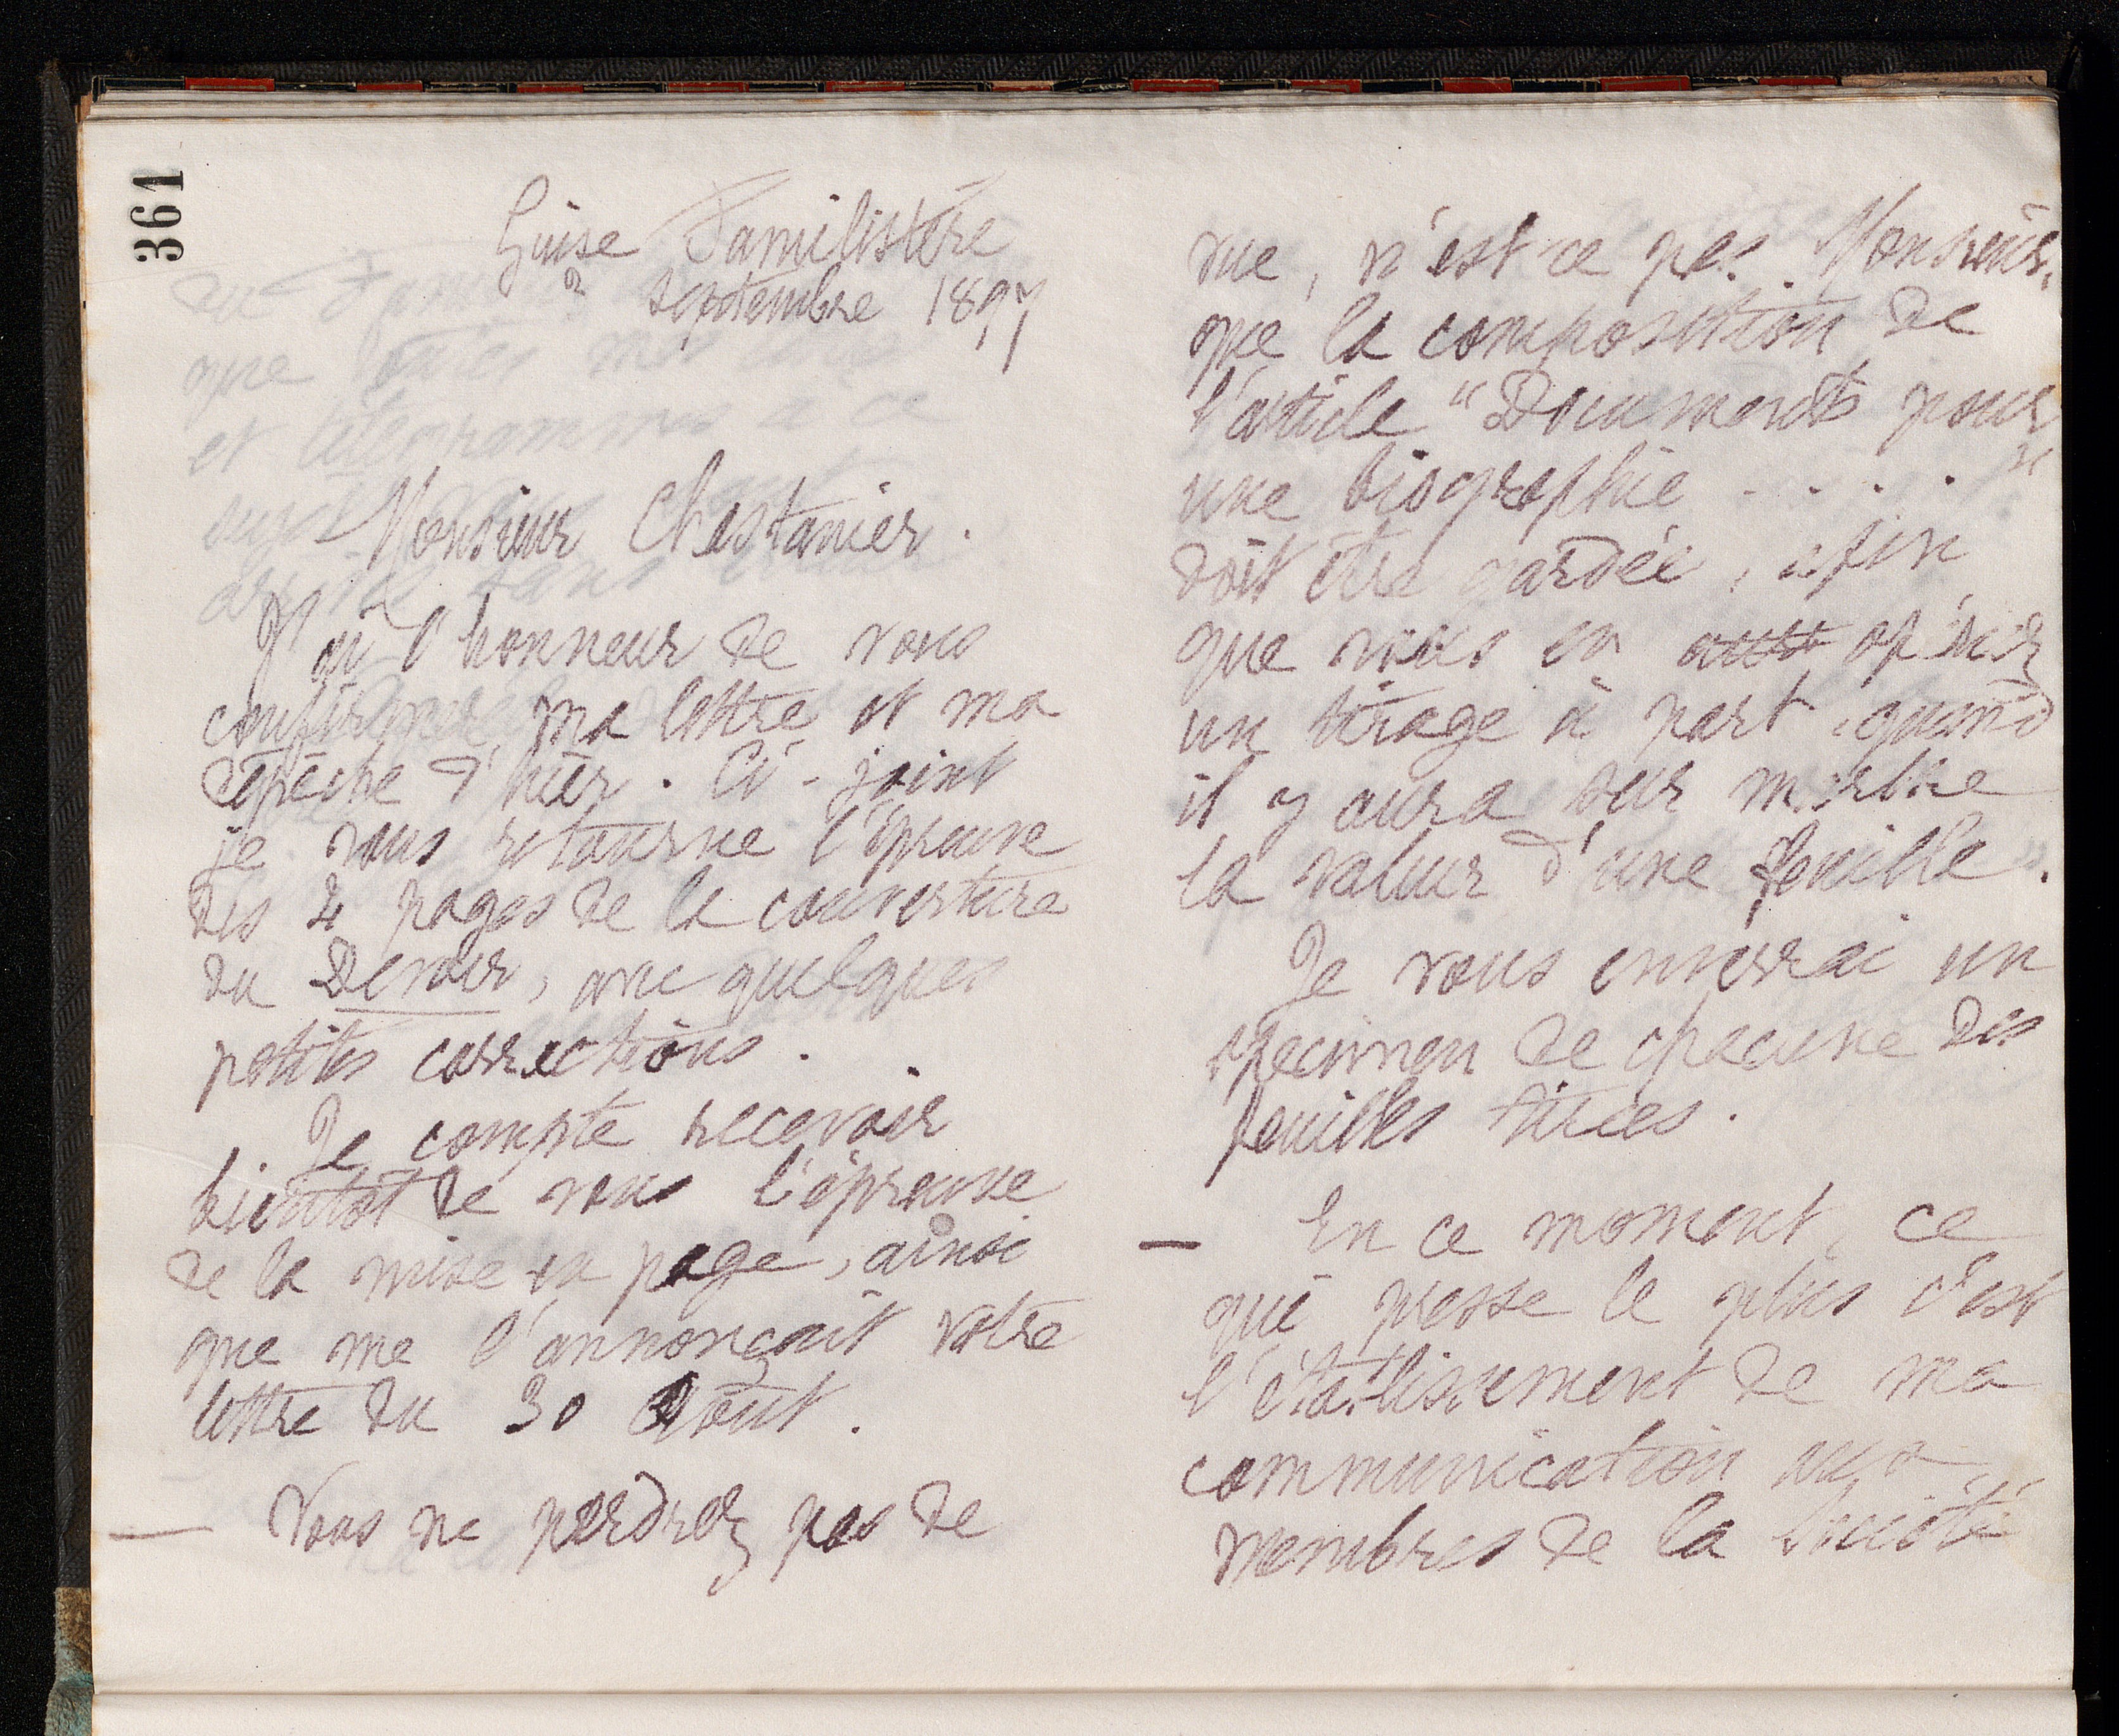 361
Guise Familistère
2 septembre 1897
Monsieur Chestanier.
J'ai l'honneur de vous
confirmer ma lettre et ma
dépêche d'hier. Ci-joint
je vous retourne l'épreuve
des 4 pages de la couverture
du Devoir, avec quelques
petites corrections.
Je compte recevoir
bientôt de vous l'épreuve
de la mise en page, ainsi
que me l'annonçait votre
lettre du 30 Août.
— Vous ne perdrez pas de
vue, n'est ce pas Monsieur,
que la composition de
l'article "Documents pour
une biographie . . . . "
doit être gardée, afin
que vous en opériez
un tirage à part quand
il y aura sur marbre
la valeur d'une feuille.
Je vous enverrai un
specimen de chacune des
feuilles tirées.
— En ce moment, ce
qui presse le plus c'est
l'établissement de ma
communication aux
membres de la Société